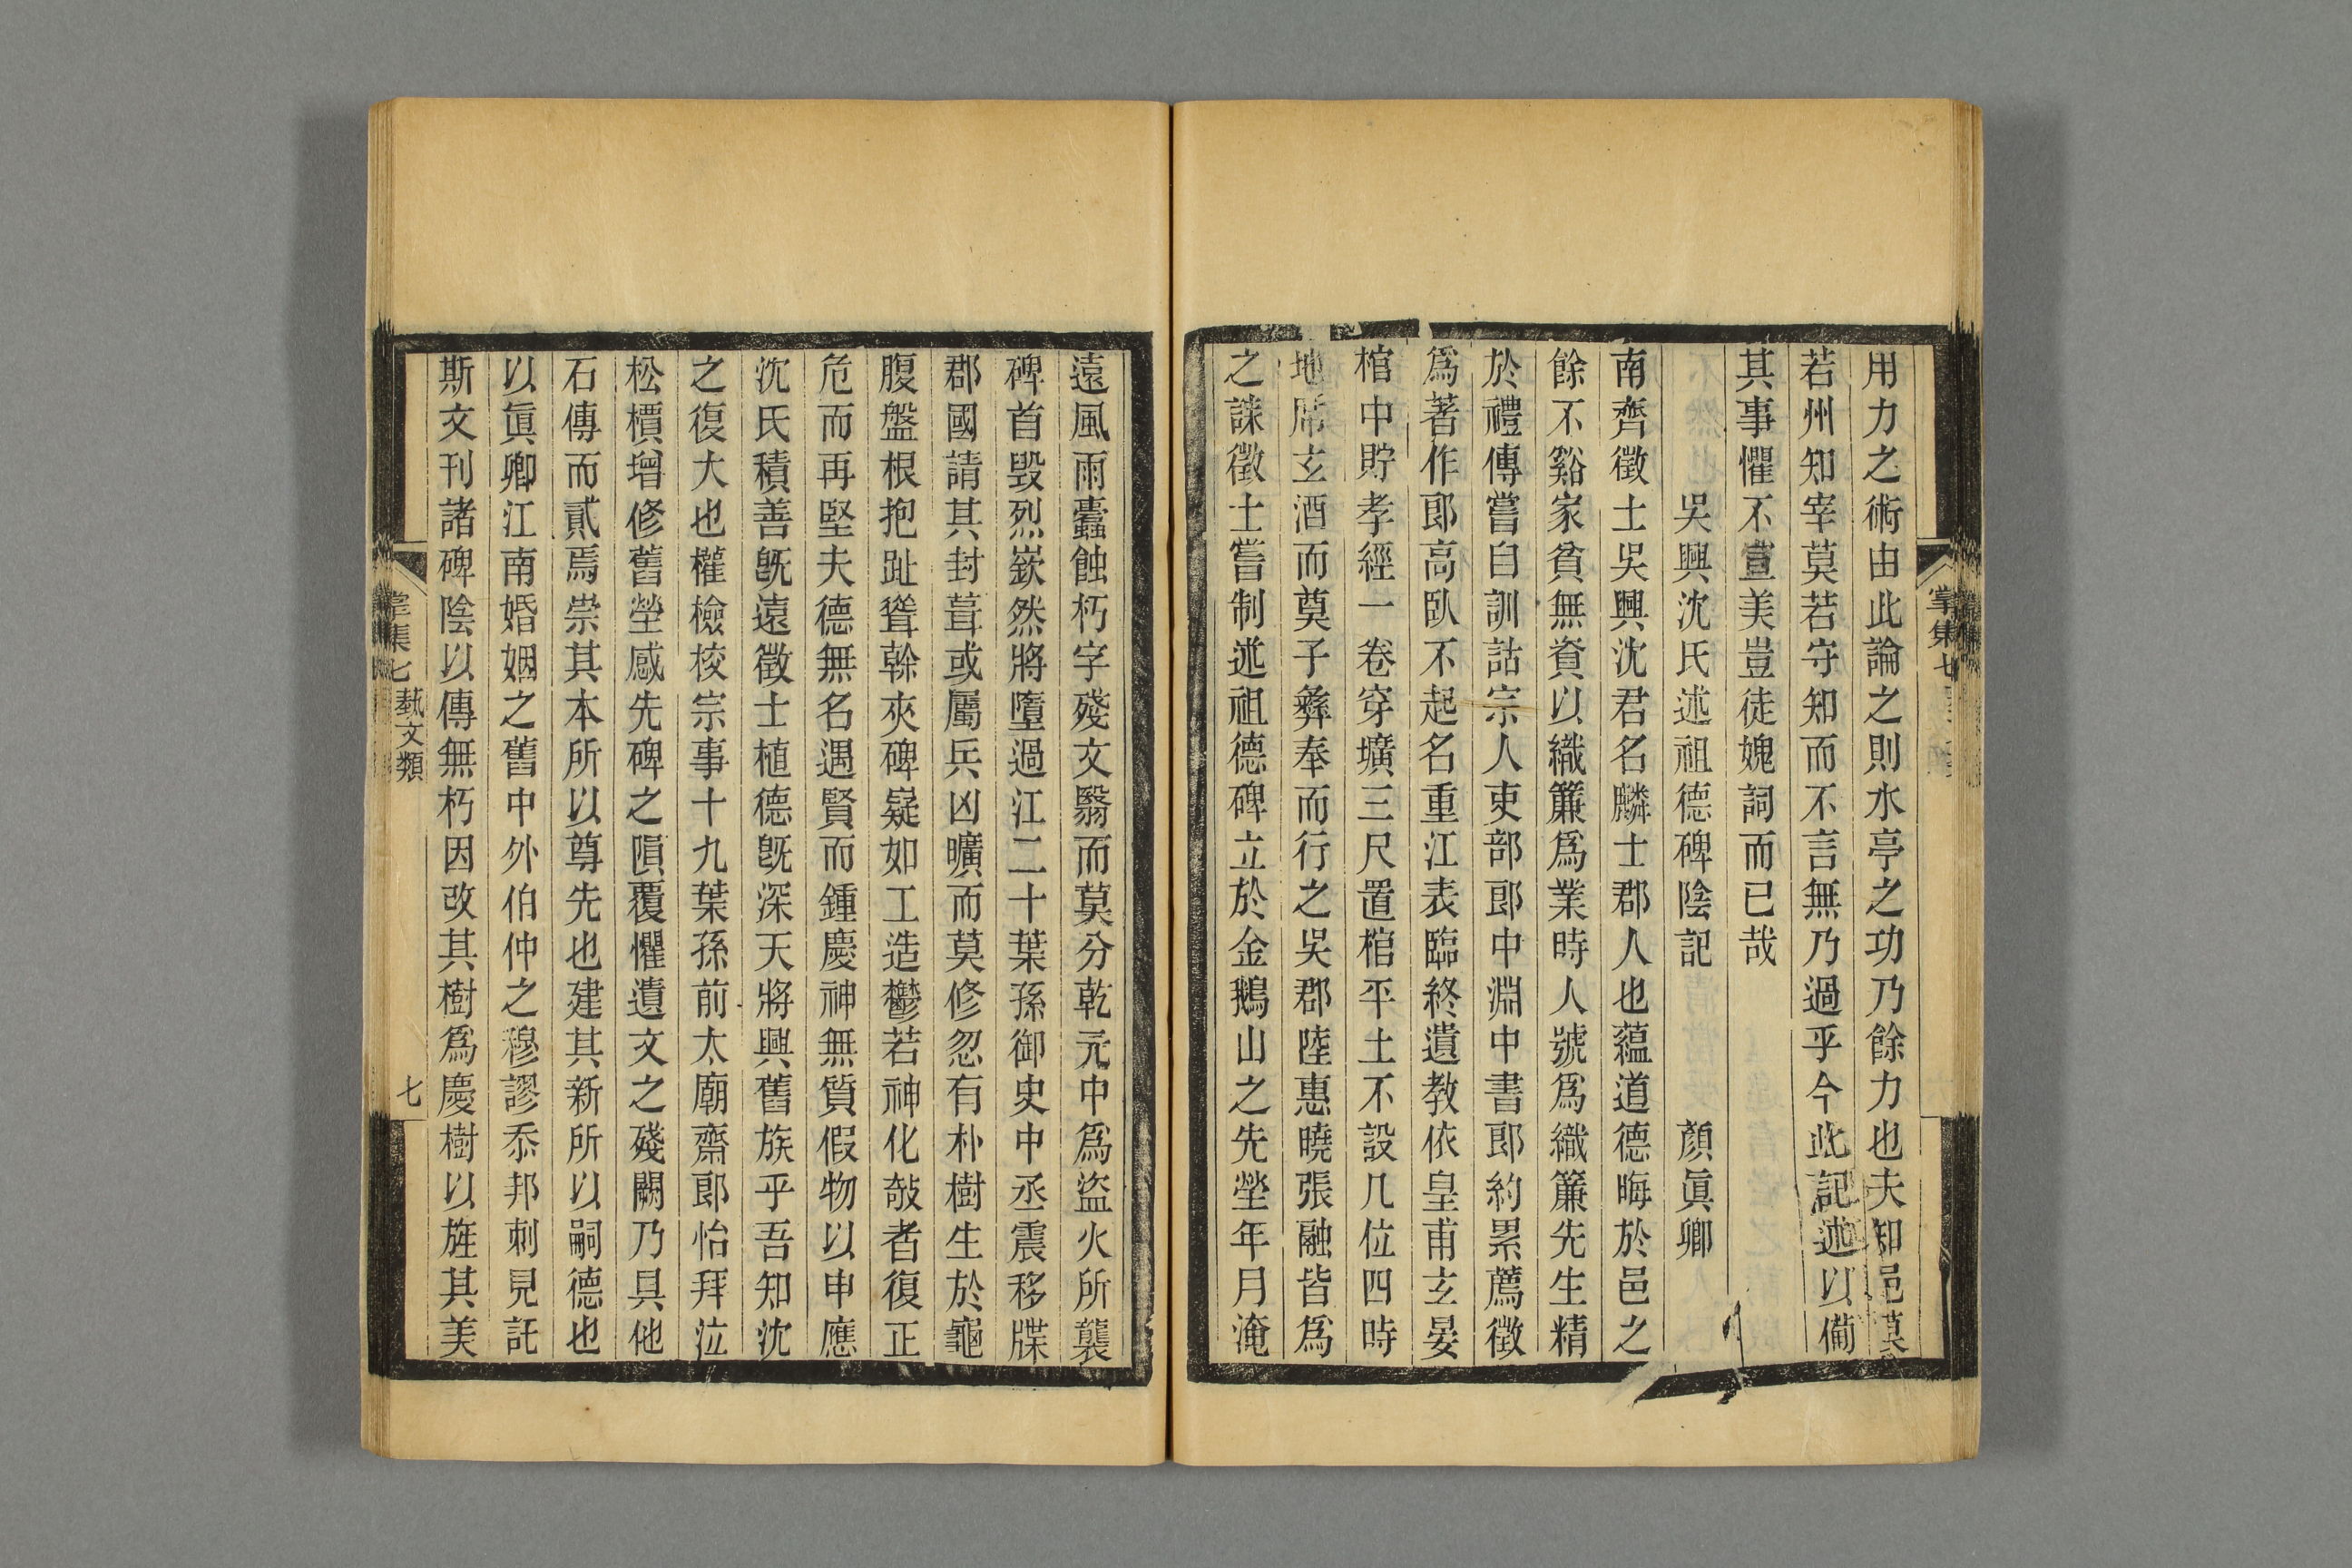 用力之術由此論之則水亭之功乃餘力也夫知邑莫
若州知宰莫若守知而不言無乃過乎今此記述以備
其事懼不萱美豈徒媿詞而已哉
吳興沈氏述祖德碑陰記 顏眞卿
南齊徵士吳興沈君名麟士郡人也蘊道德晦於邑之
餘不谿家貧無資以織簾爲業時人號爲織簾先生精
於禮傳嘗白訓詁宗人吏部郎中淵中書郎約累薦徵
爲著作郎高臥不起名重江表臨終遺教依皇甫玄晏
棺中貯孝經一卷穿壙三尺置棺平土不設几位四時
地席玄酒而奠子彝奉而行之吳郡陸惠曉張融皆爲
之誄徵士嘗制述祖德碑立於金鵝山之先塋年月淹
遠風雨蠹蝕朽字殘文翳而莫分乾元中爲盜火所襲
碑首毀烈嶔然將墮過江二十葉孫御史中丞震移牒
郡國請其封葺或屬兵凶曠而莫修忽有朴樹生於龜
腹盤根抱趾聳榦夾碑嶷如工造鬱若神化攲者復正
危而再堅夫德無名遇賢而鍾慶神無質假物以申應
沈氏積善旣遠徵士植德旣深天將興舊族乎吾知沈
之復大也權檢校宗事十九葉孫前太廟齋郎怡拜泣
松檟增修舊塋感先碑之隕覆懼遺文之殘闕乃具他
石傳而貳焉崇其本所以尊先也建其新所以嗣德也
以眞卿江南婚姻之舊中外伯仲之穆謬忝邦刺見託
斯文刊諸碑陰以傳無朽因改其樹爲慶樹以旌其美
掌集七
掌集七 藝文類 七